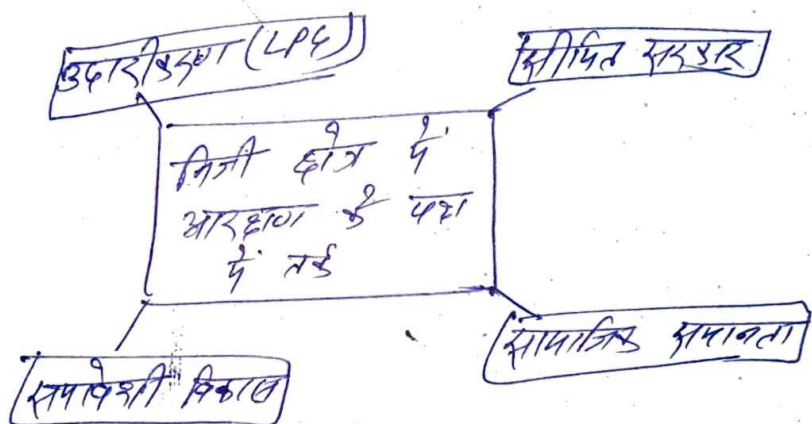 उदारीकरण (LPG)
सीमित सरकार
निजी क्षेत्र में
आरक्षण के पक्ष
में तर्क
समावेशी विकास
सामाजिक समानता